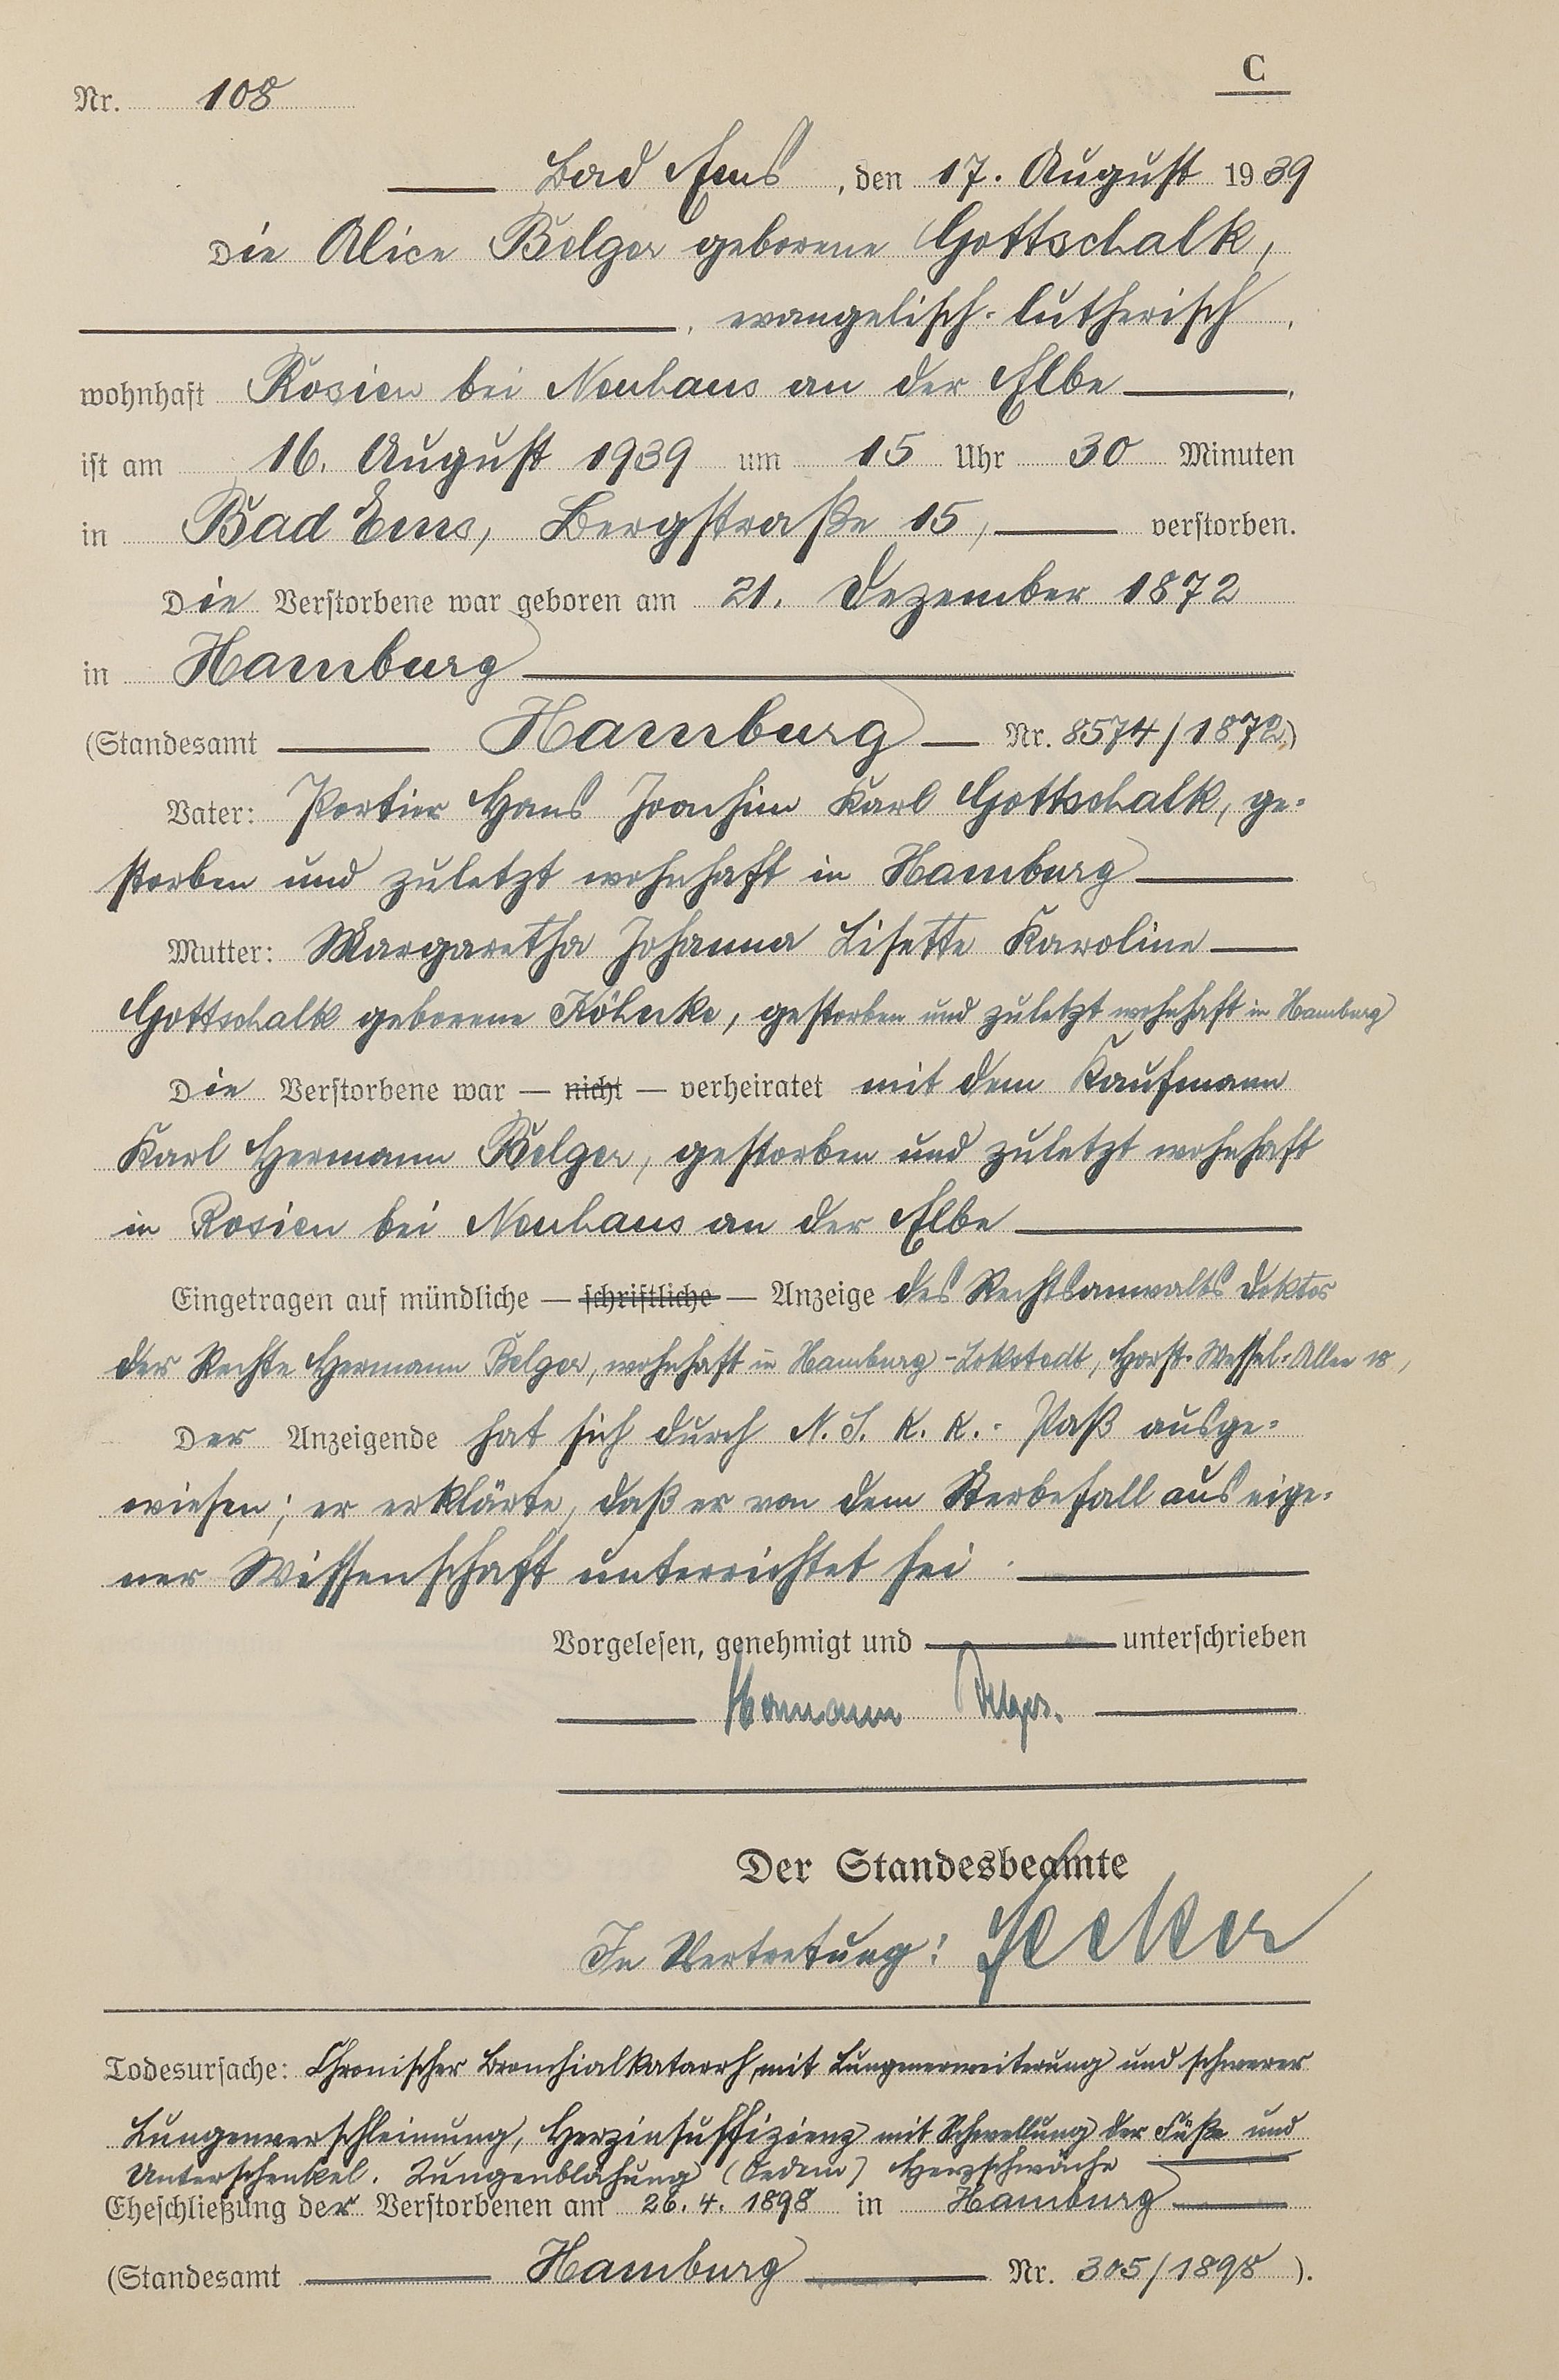 C
Nr. 108
Bad Ems, den 17. August 1939
Die Alice Belger geborene Gottschalk,
, evangelisch-lutherisch,
wohnhaft Rosien bei Neuhaus an der Elbe,
ist am 16. August 1939 um 15 Uhr 30 Minuten
in Bad Ems, Bergstraße 15, verstorben.
Die Verstorbene war geboren am 21. Dezember 1872
in Hamburg
(Standesamt Hamburg Nr. 8574/1872)
Vater: Portier Hans Joachim Karl Gottschalk, ge-
storben und zuletzt wohnhaft in Hamburg
Mutter: Margaretha Johanna Lisette Karoline
Gottschalk geborene Köhnke, gestorben und zuletzt wohnhaft in Hamburg
Die Verstorbene war — nicht — verheiratet mit dem Kaufmann
Karl Hermann Belger, gestorben und zuletzt wohnhaft
in Rosien bei Neuhaus an der Elbe
Eingetragen auf mündliche — schriftliche — Anzeige des Rechtsanwalts Doktor
der Rechte Hermann Belger, wohnhaft in Hamburg-Lokstedt, Horst-Wessel-Allee 18,
Der Anzeigende hat sich durch N.S.K.K.-Paß ausge-
wiesen; er erklärte, daß er von dem Sterbefall aus eige-
ner Wissenschaft unterrichtet sei.
Vorgelesen, genehmigt und unterschrieben
Hermann Belger.
Der Standesbeamte
In Vertretung:
Todesursache: Chronischer Bronchialkatarrh, mit Lungenerweiterung und schwerer
Lungenverschleimung, Herzinsuffizienz mit Schwellung der Füße und
Unterschenkel. Lungenblähung (Oedem) Herzschwäche
Eheschließung der Verstorbenen am 26.4.1898 in Hamburg
(Standesamt Hamburg Nr. 305/1898).